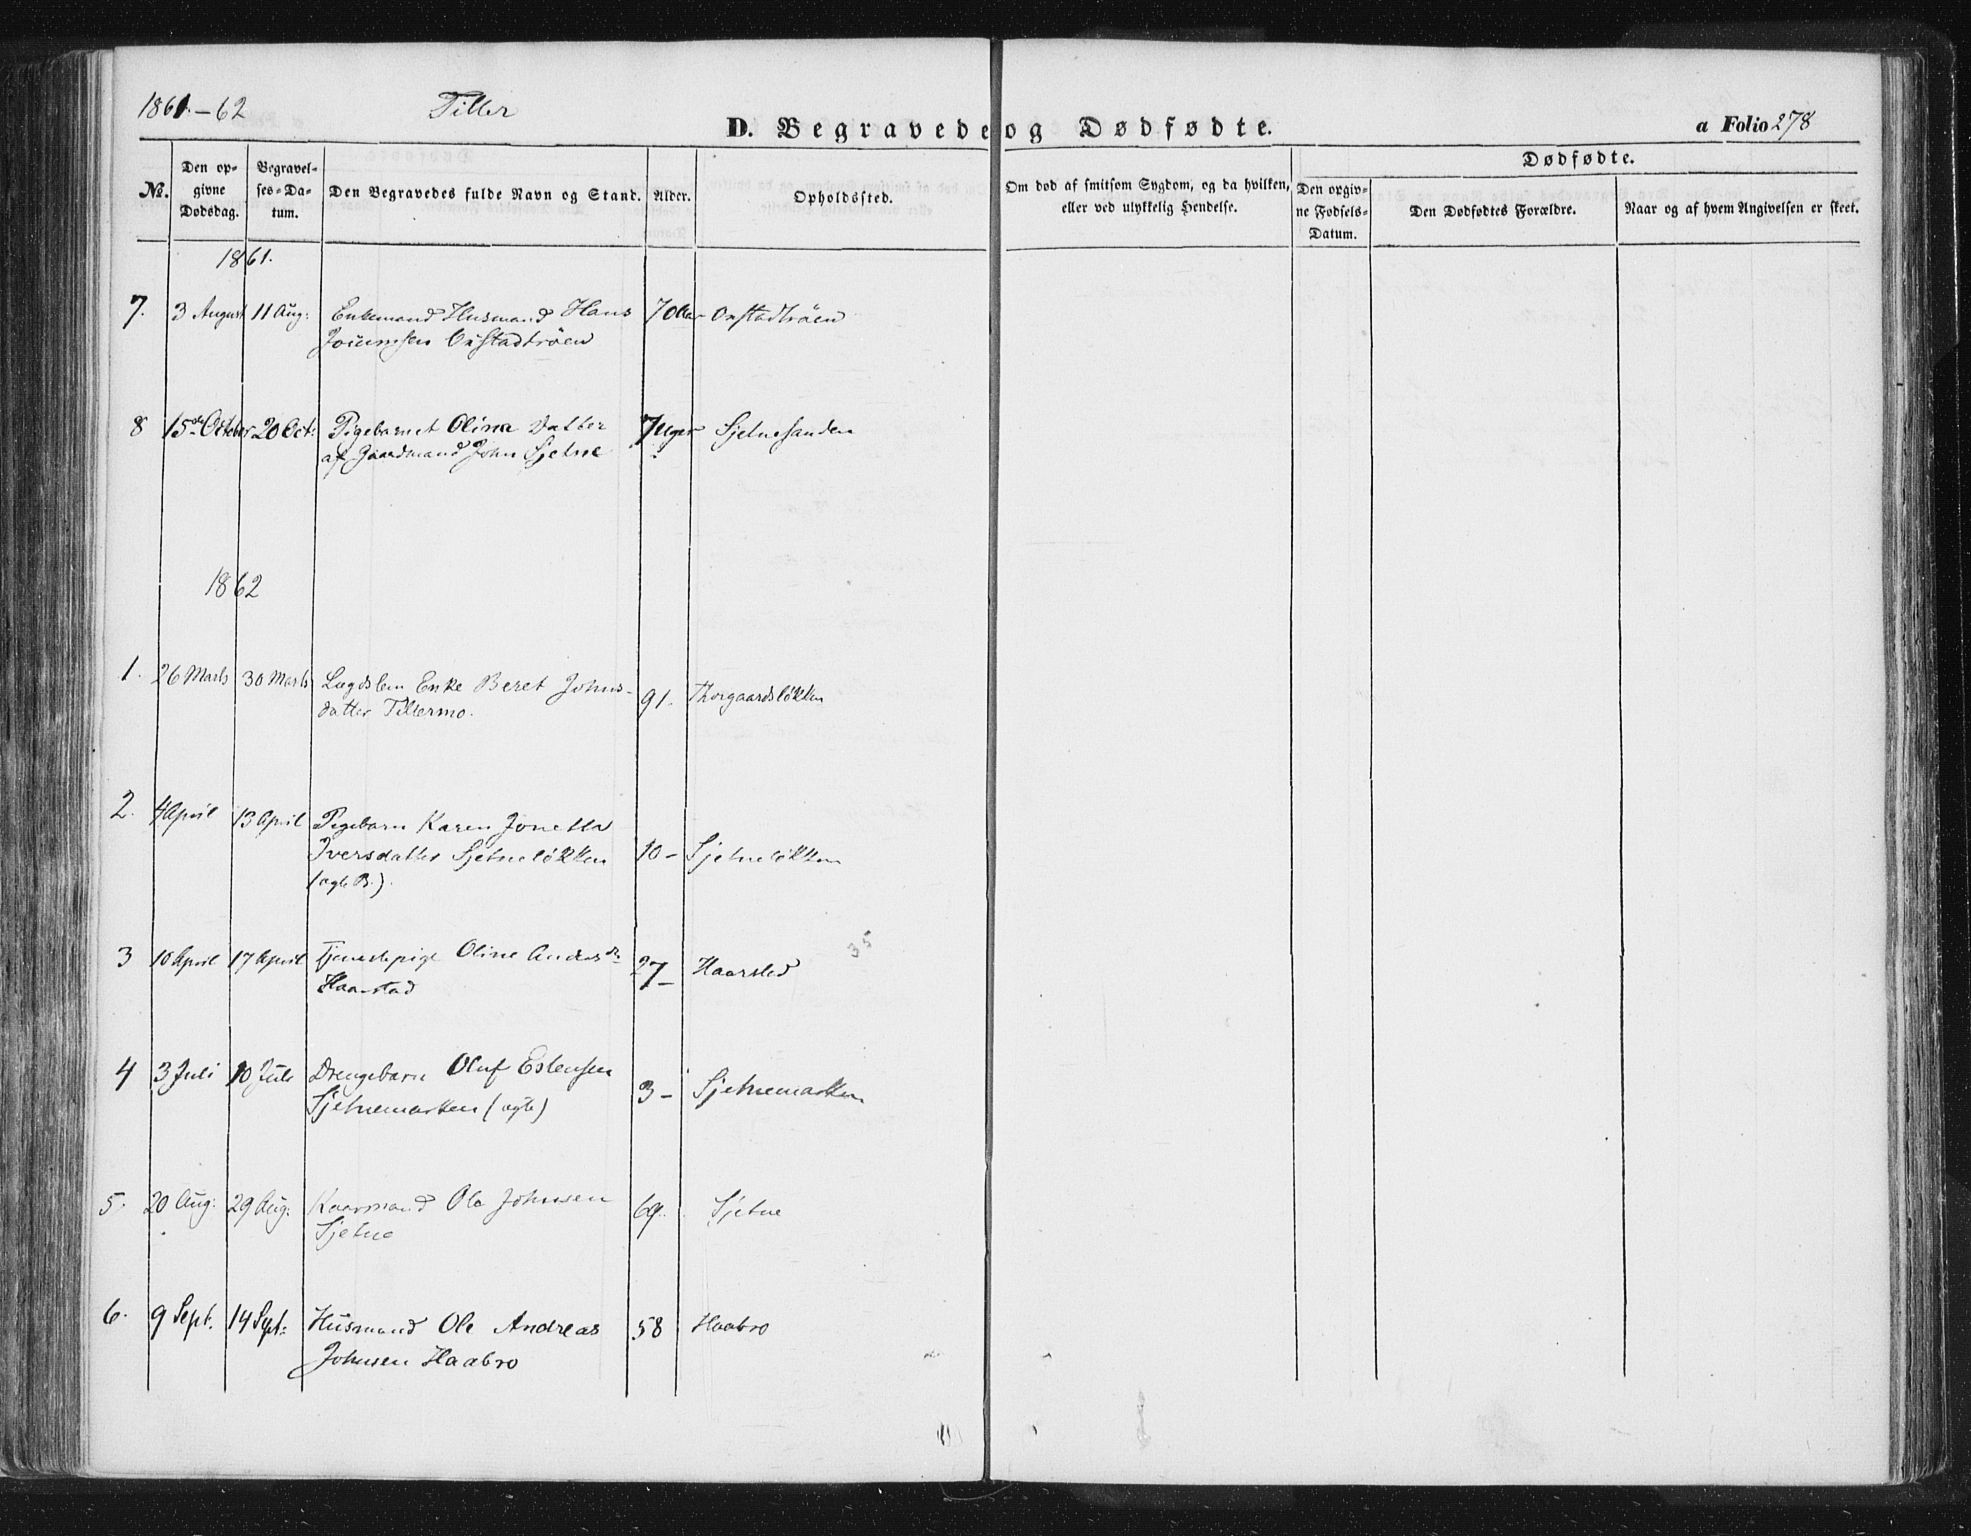 1861-62 Tiller
D. Begravede og Dødfødte.
a Folio 278
No.
Den opgivne Dødsdag.
Begravelses-Datum.
Den Begravedes fulde Navn og Stand.
Alder.
Opholdssted.
Om død af smitsom Sygdom, og da hvilken, eller ved ulykkelig Hendelse.
Dødfødte.
Den opgivne Fødsels-Datum.
Den Dødfødtes Forældre.
Naar og af hvem Angivelsen er skeet.
1861.
7. 3 August 11 Aug: Enkemand Husmand Hans 70 Aar
8 15de October 20 Oct: Pigebarnet Olina Datter 7 Uger Sjetnesanden
af Gaardmand John Sjetne
1862
1. 26 Marts 30 Marts Lægdslem Enke Beret Johns-
datter Tillermo. 91. Thorgaardsløkken
2. 4 April 13 April Pigebarn Karen Jonetta
Iversdatter Sjetneløkken 10 - Sjetneløkken
(ægte B.).
3 10 April 17 April Tjenestepige Oline Andersdr 27 - Haarstad
Haarstad
35
4 3 Juli 10 Juli Drengebarn Oluf Estensen
Sjetnemarken (ægte) 3 - Sjetnemarken
5. 20 Aug: 29 Aug: Kaarmand Ole Johnsen 69. Sjetne
Sjetne
6. 9 Sept. 14 Sept: Husmand Ole Andreas 58 Haabro
Johnsen Haabro